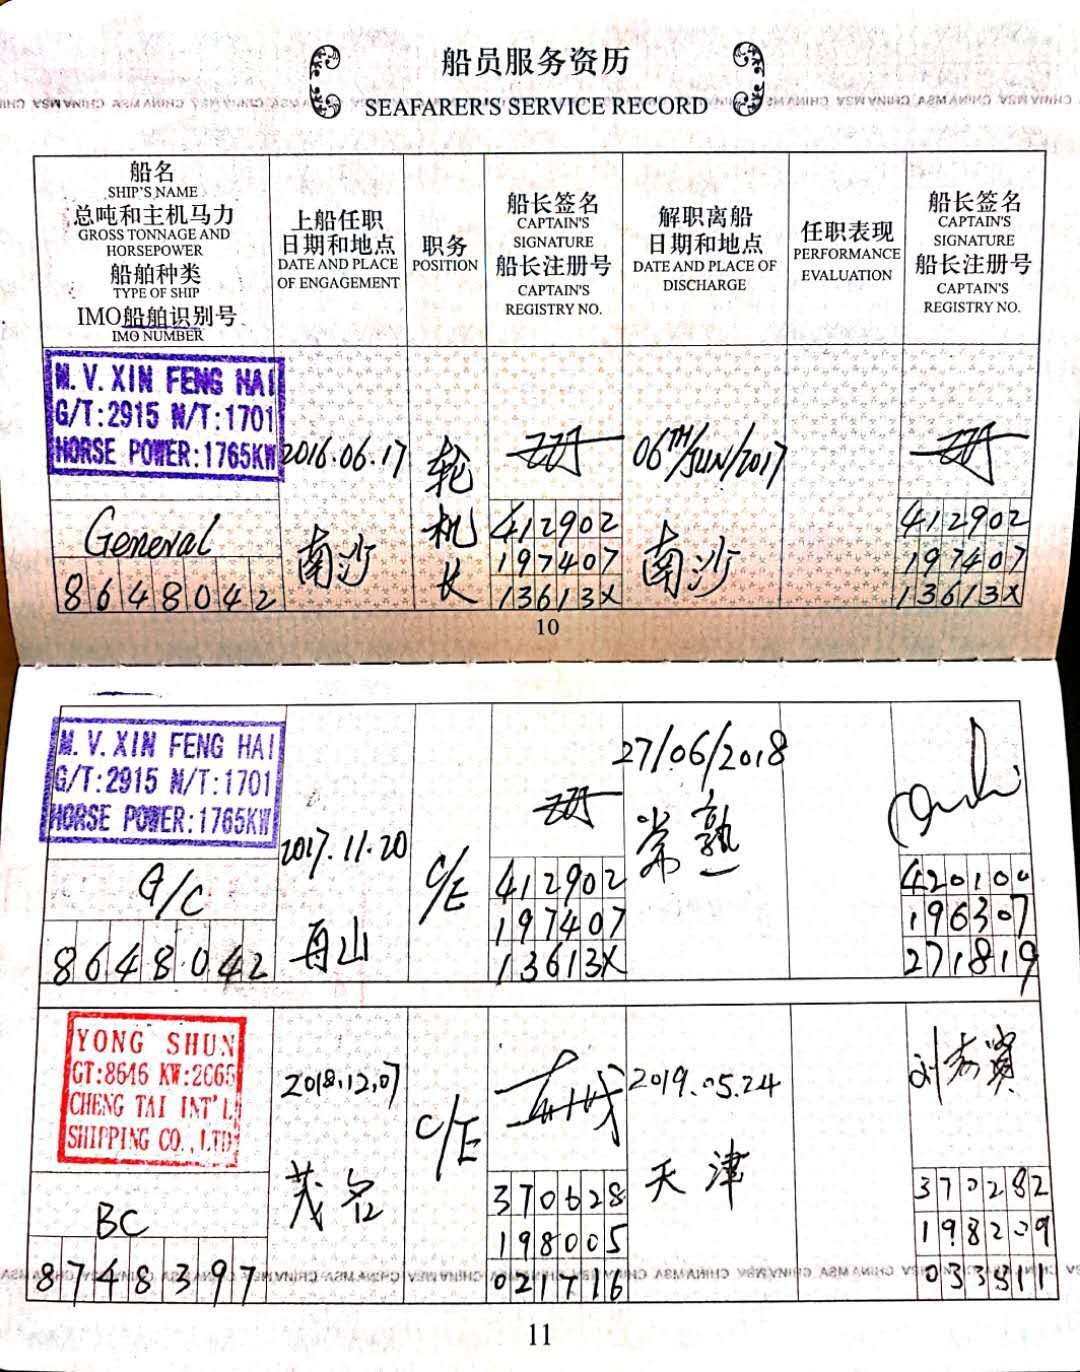 船员服务资历
SEAFARER'S SERVICE RECORD
船名
SHIP'S NAME
总吨和主机马力
GROSS TONNAGE AND
HORSEPOWER
船舶种类
TYPE OF SHIP
IMO船舶识别号
IMO NUMBER
上船任职
日期和地点
DATE AND PLACE
OF ENGAGEMENT
职务
POSITION
船长签名
CAPTAIN'S
SIGNATURE
船长注册号
CAPTAIN'S
REGISTRY NO.
解职离船
日期和地点
DATE AND PLACE OF
DISCHARGE
任职表现
PERFORMANCE
EVALUATION
船长签名
CAPTAIN'S
SIGNATURE
船长注册号
CAPTAIN'S
REGISTRY NO.
M.V.XIN FENG HAI
G/T:2915 N/T:1701
HORSE POWER:1765KW
General
8648042
2016.06.17
南沙
轮机长
412902
197407
13613X
06TH/JUN/2017
南沙
412902
197407
13613X
10
M.V.XIN FENG HAI
G/T:2915 N/T:1701
HORSE POWER:1765KW
G/C
8648042
2017.11.20
舟山
C/E
412902
197407
13613X
27/06/2018
常熟
420100
196307
271819
YONG SHUN
GT:8646 KW:2665
CHENG TAI INT'L
SHIPPING CO.,LTD
BC
8748397
2018.12.07
茂名
C/E
370628
198005
021716
2019.05.24
天津
370282
198209
033311
11